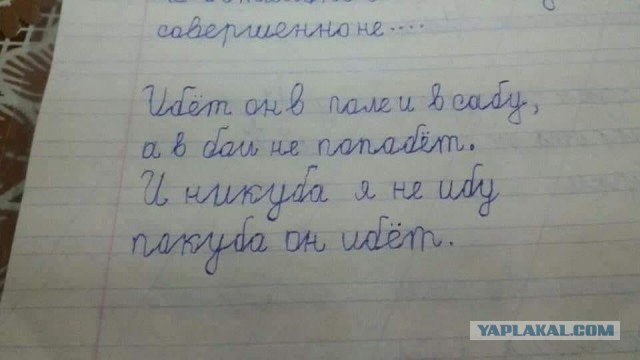 совершенно не....
Ибёт он в поле и в сабу,
а в бом не попабёт.
И никуба я не ибу
покуба он ибёт.
YAPLAKAL.COM